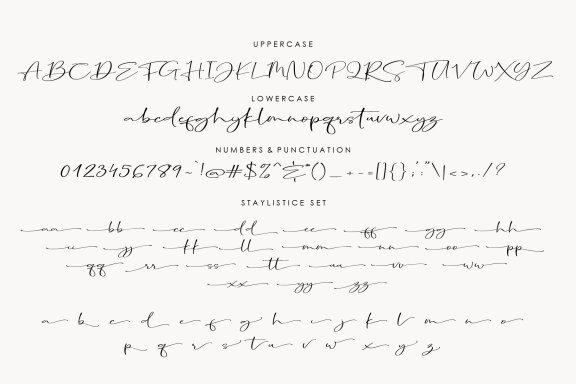 UPPERCASE
ABCDEFGHIJKLMNOPQRSTUVWXYZ
LOWERCASE
abcdefghijklmnopqrstuvwxyz
NUMBERS & PUNCTUATION
0123456789~`!@#$%^&*()_+-=[]{};:'"\|<>,./?
STAYLISTICE SET
aa bb cc dd ee ff gg hh
ii jj kk ll mm nn oo pp
qq rr ss tt uu vv ww
xx yy zz
a b c d e f g h i j k l m n o
p q r s t u v w x y z